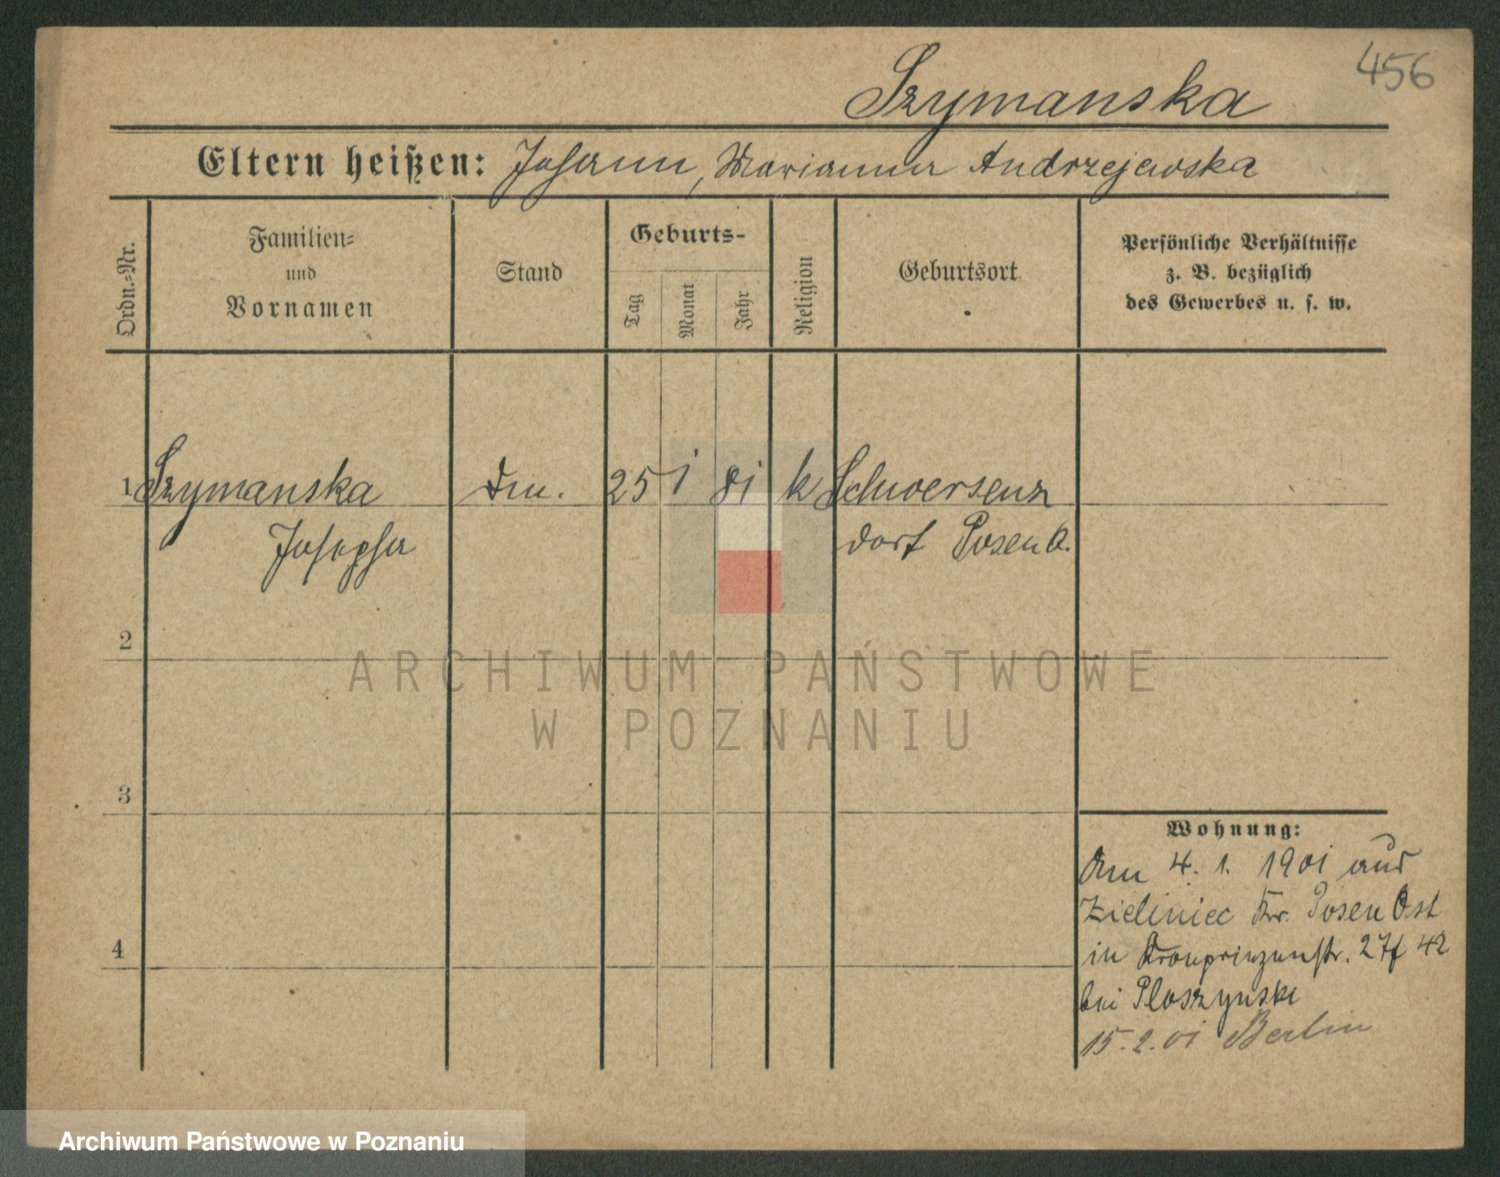 456
Szymanska
Eltern heißen: Johann, Marianna Andrzejewska
Ordn.-Nr.
Familien-
und
Vornamen
Stand
Geburts-
Tag
Monat
Jahr
Religion
Geburtsort
Persönliche Verhältnisse
z. B. bezüglich
des Gewerbes u. s. w.
1 Szymanska 25 1 81 k Schwersenz
Josepha dorf Posen O.
2
3
4
Wohnung:
Am 4. 1. 1901 aus
Zieliniec Kr. Posen Ost
in Kronprinzenstr. 27 42
bei Ploszynski
15.2.01 Berlin
ARCHIWUM PAŃSTWOWE
W POZNANIU
Archiwum Państwowe w Poznaniu